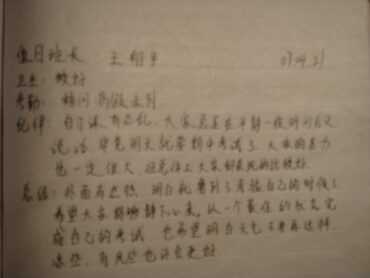 值日班长 王翔宇 07.04.21
卫生：较好.
考勤：杨问 病假未到
纪律：自习课有点乱，大家总是在平静一段时间后又
说话，毕竟明天就要期中考试了，大家的压力
也一定很大，但总体上大家的表现还比较好.
总结：外面有些热，明白就要到了考验自己的时候了
希望大家能够静下心来，以一个最佳的状态完
成自己的考试，也希望明白天气不要再这样
凉些，有风些也许会更好.